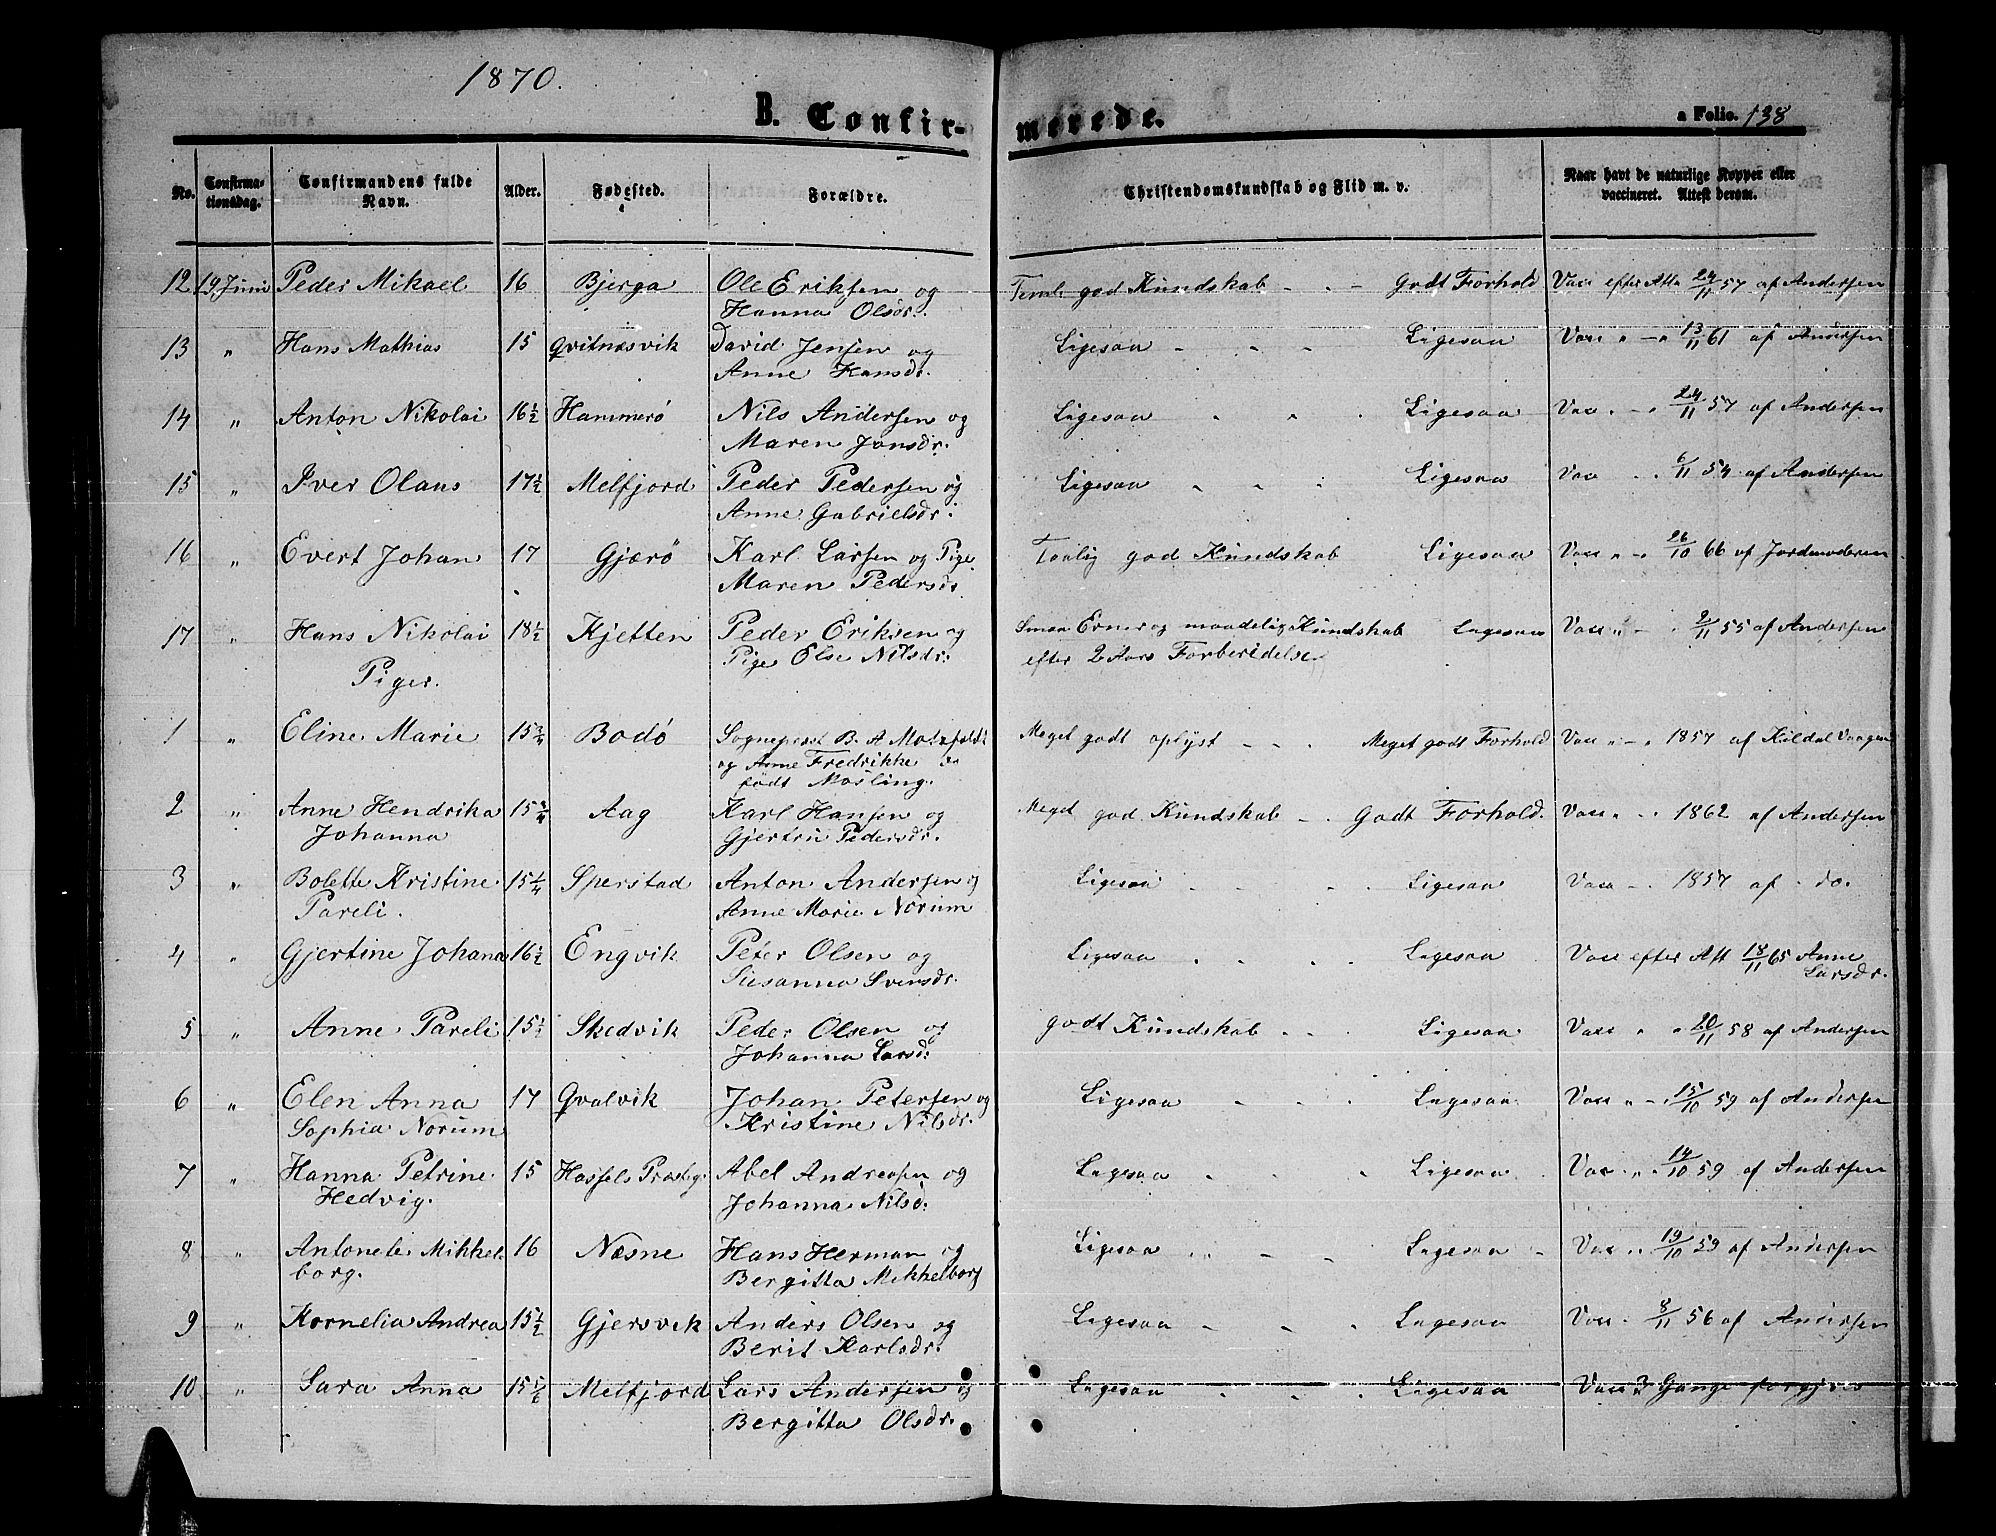 1870.
B. Confir-
merede.
a Folio. 138
No.
Confirma-
tionsdag.
Confirmandens fulde
Navn.
Alder.
Fødested.
Forældre.
Christendomskundskab og Flid m. v.
Naar havt de naturlige Kopper eller
vaccineret. Attest derom.
12 19 Juni Peder Mikael 16 Bjerga Ole Eriksen og god Kundskab - - - Godt Forhold Vacc efter Atta 24/11 57 af Andersen
Hanna Olsdr.
13 " Hans Mathias 15 Qvitnæsvik David Jensen og Ligesaa - - - Ligesaa Vacc " - " 13/11 61 af Andersen
Anne Hansdr.
14 " Anton Nikolai 16½ Hammerø Nils Andersen og Ligesaa " " . Ligesaa Vacc . - . 24/11 57 af Andersen
Maren Jonsdr.
15 " Iver Olaus 17½ Melfjord Peder Pedersen og Ligesaa " " . Ligesaa Vacc - . 6/11 54 af Andersen
Anne Gabrielsdr.
16 " Evert Johan 17 Gjærø Karl Larsen og Pige Taalig god Kundskab Ligesaa Vacc " - " 26/10 66 af Jordmoderen
Maren Pedersdr.
17 " Hans Nikolai 18½ Kjetten Peder Eriksen og Smaa Evner og maadelig Kundskab Ligesaa Vacc " - . 2/11 55 af Andersen
Pige Else Nilsdr. efter 2 Aars Forberedelse
Piger.
1 " Eline Marie 15¾ Bodø Sognepræst B. A Meget godt oplyst - - - Meget godt Forhold Vacc " - " 1857 af Kildal Vaagen
og Anne Fredrikke
født Morling.
2 " Anne Hendrika 15¾ Aag Karl Hansen og Meget god Kundskab - . Godt Forhold. Vacc " - . 1862 af Andersen
Johanna Gjertru Pedersdr.
3 " Bolette Kristine 15¼ Sperstad Anton Andersen og Ligesaa - - - Ligesaa Vacc - . 1857 af - do.
Pareli. Anne Marie Norum
4 " Gjertine Johana 16½ Engvik Peter Olsen og Ligesaa . . . Ligesaa Vacc efter Att 18/11 65 Anne
Susanna Svensdr. Larsdr.
5 " Anne Pareli 15½ Skedvik Peder Olsen og godt Kundskab - - . Ligesaa Vacc " " 20/11 58 af Andersen
Johanna Larsd:
6 " Elen Anna 17 Qvalvik Johan Petersen og Ligesaa - - . Ligesaa Vacc " - . 15/10 59 af Andersen
Sophia Norum Kristine Nilsdr.
7 " Hanna Petrine 15 Hassels Præsteg. Abel Andreasen og Ligesaa - . . Ligesaa Vac . " 14/10 59 af Andersen
Hedvig. Johanna Nilsd:
8 " Antonete Mikkel- 16 Næsne Hans Herman og Ligesaa " - - Ligesaa - Vac " . 19/10 59 af Andersen
borg. Bergitta Mikkelborg
9 " Kornelia Andrea 15½ Gjersvik Anders Olsen og Ligesaa - - . Ligesaa Vacc . 8/11 56 af Andersen
Berit Karlsdr.
10 " Sara Anna 15½ Melfjord Lars Andersen og Ligesaa - . . Ligesaa Vacc 3 Gange forgjæves
Bergitta Olsdr.